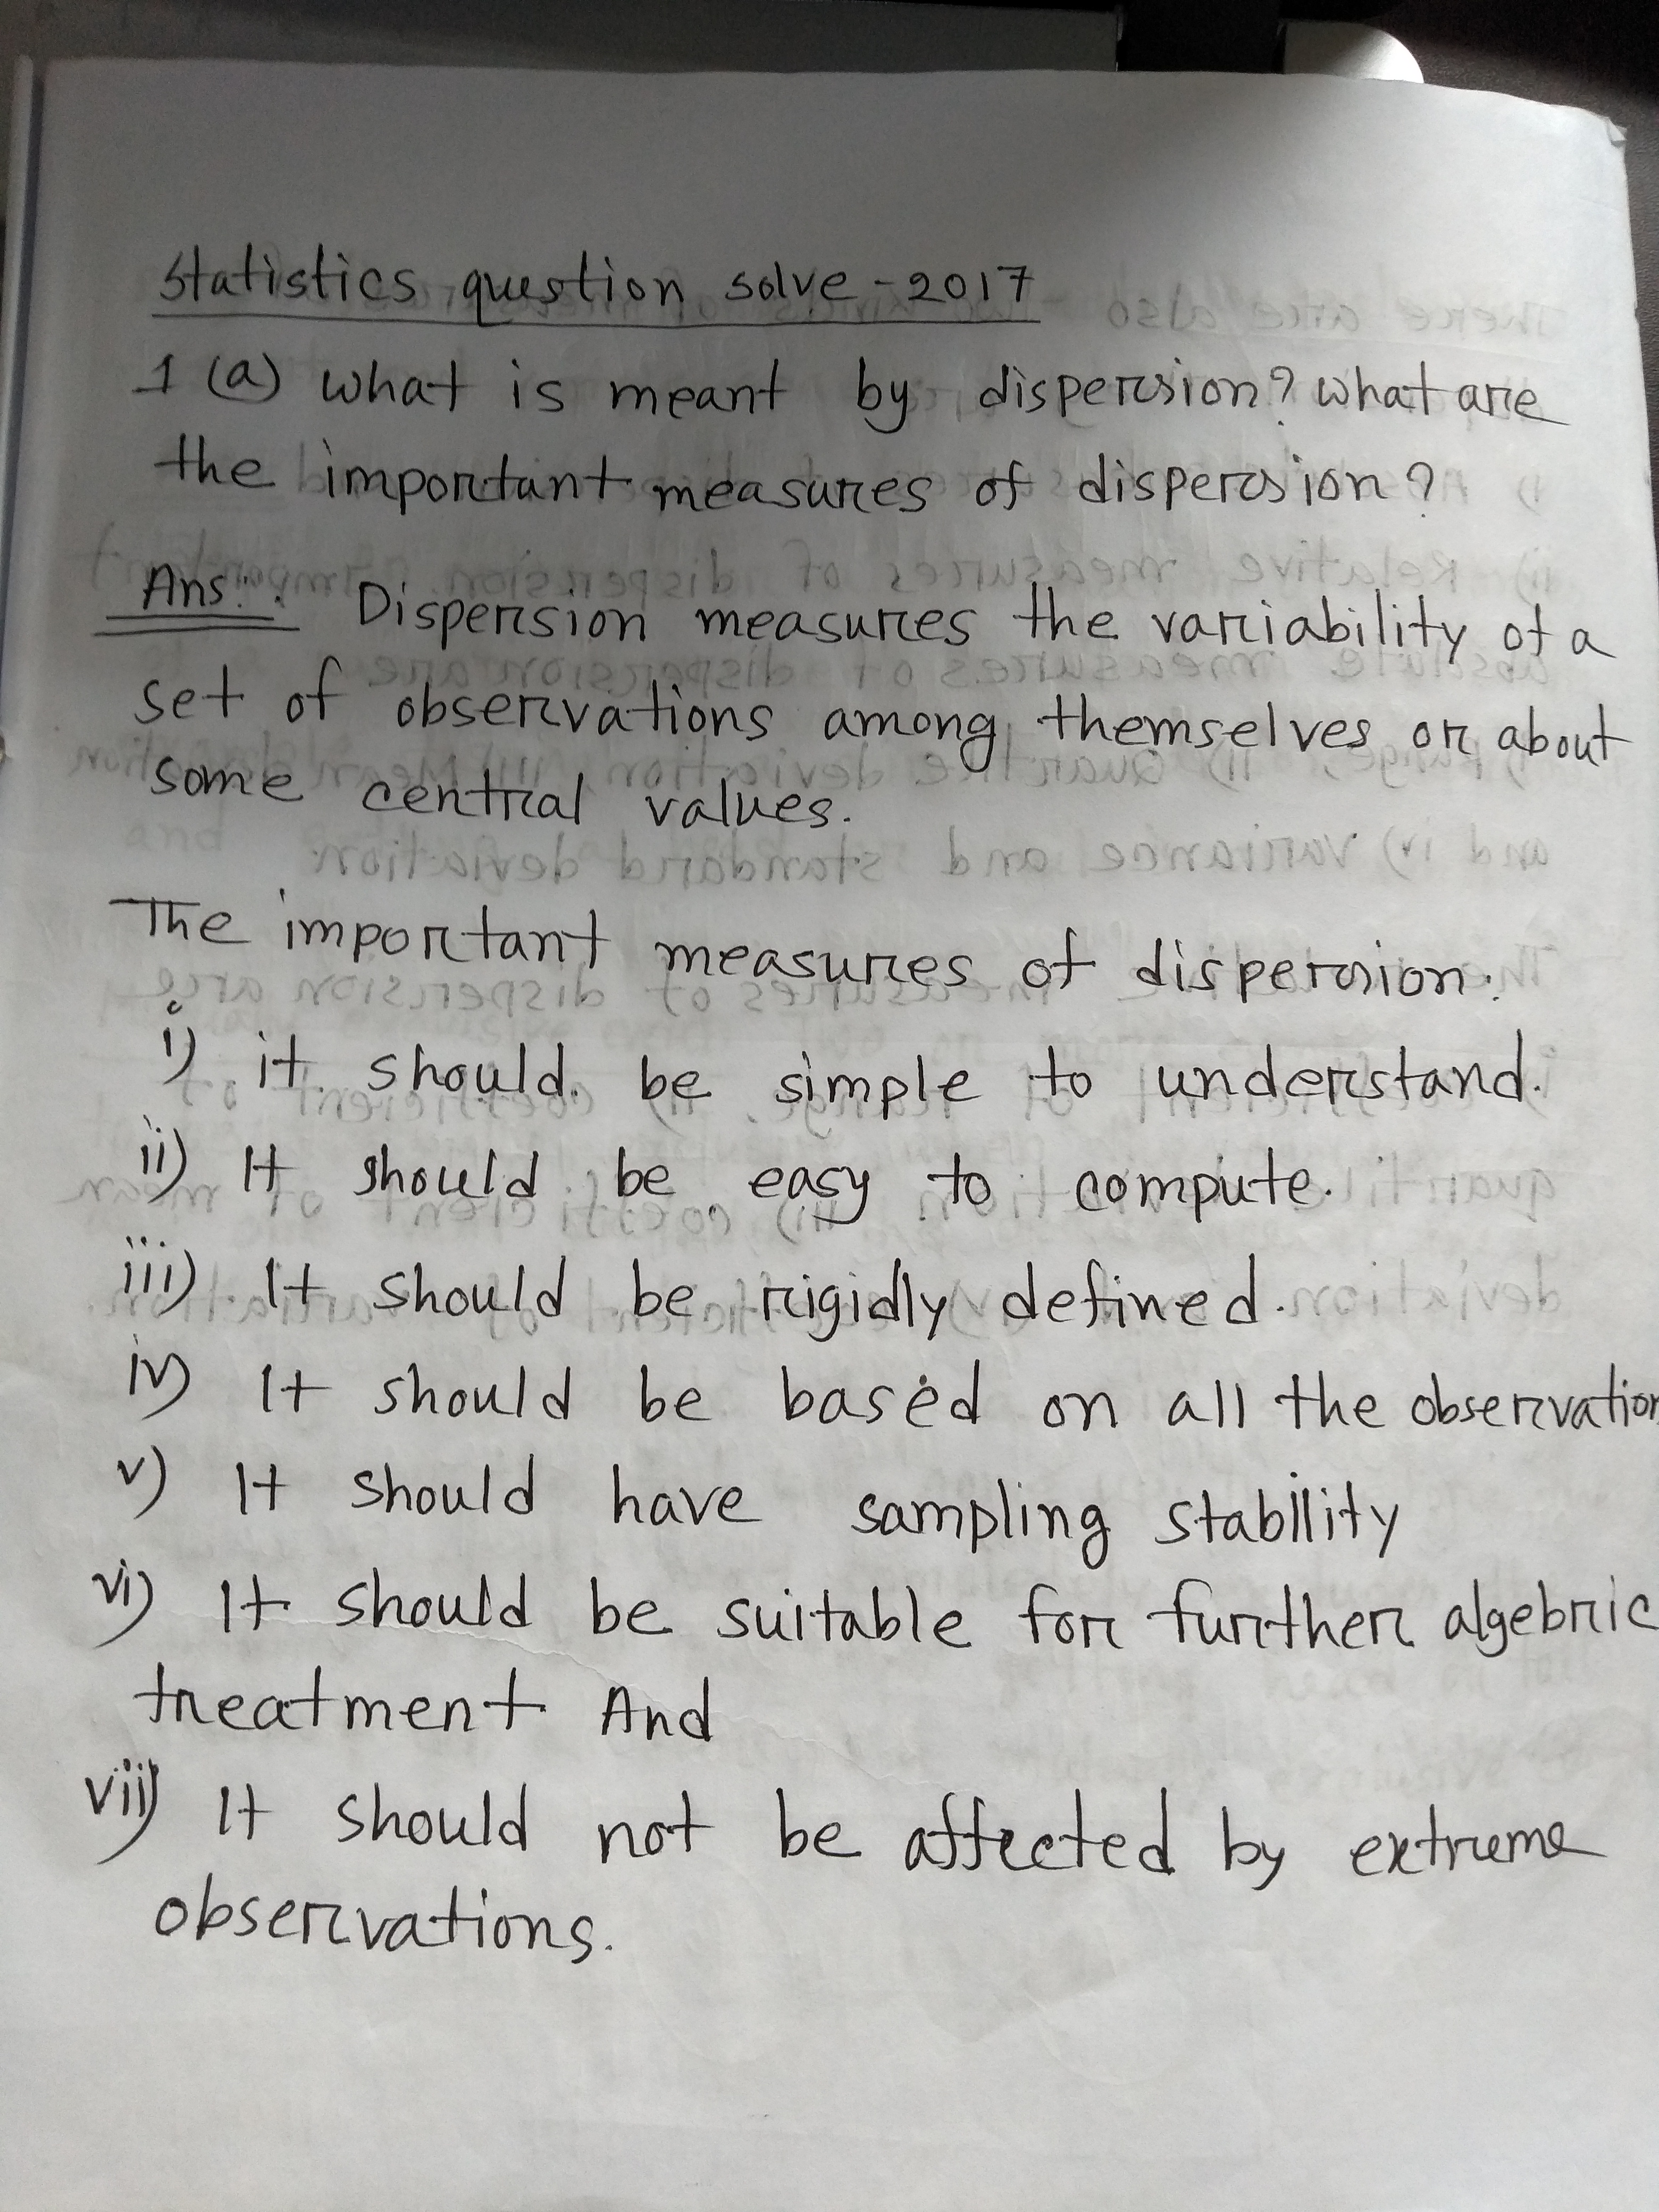 Statistics question solve - 2017
1 (a) what is meant by dispersion? what are
the important measures of dispersion?
Ans:. Dispersion measures the variability of a
set of observations among themselves or about
some central values.
The important measures of dispersion:
i) it should be simple to understand.
ii) It should be easy to compute.
iii) It should be rigidly defined.
iv) It should be based on all the observation
v) It should have sampling stability
vi) It should be suitable for further algebric
treatment And
vii) It should not be affected by extreme
observations.